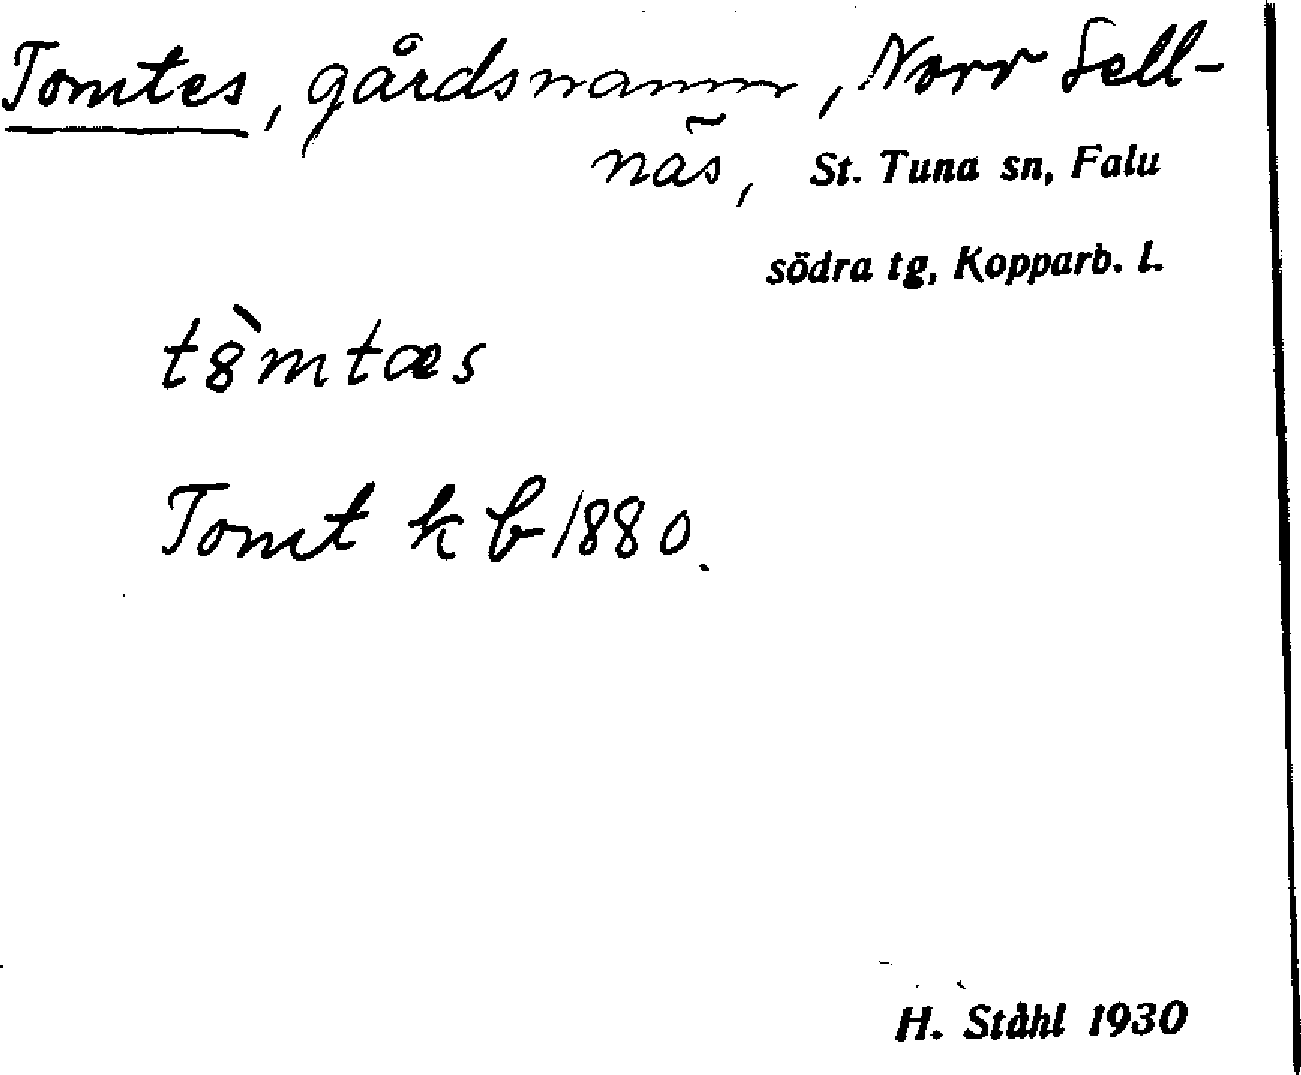 Tomtes, gårdsnamn, Norr Sell-
näs, St. Tuna sn, Falu
södra tg, Kopparb. l.
t8̀mtæs
Tomt kb 1880.
H. Ståhl 1930